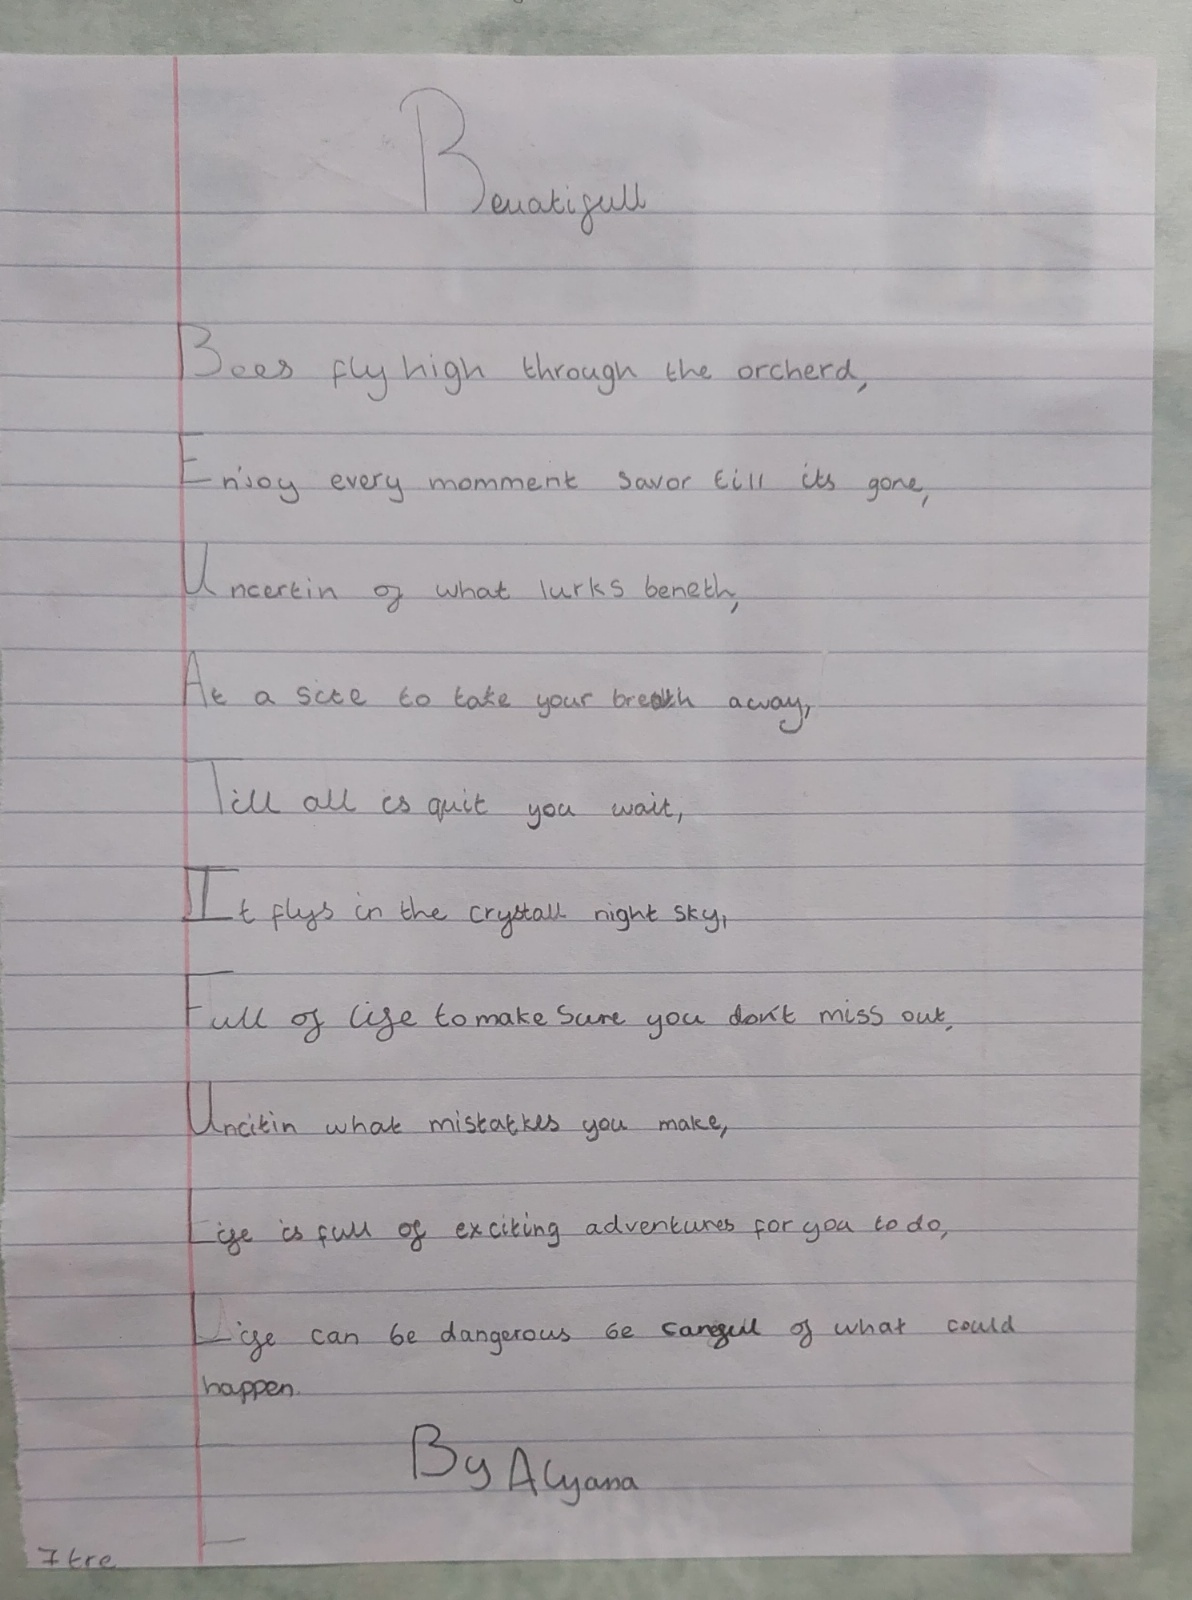 Beuatifull
Bees fly high through the orcherd,
Enjoy every momment savor till its gone,
Uncertin of what lurks beneth,
At a site to take your breath away,
Till all is quit you wait,
It flys in the crystall night sky,
Full of life to make sure you don't miss out,
Uncitin what mistatkes you make,
Life is full of exciting adventures for you to do,
Life can be dangerous be careful of what could
happen.
By Alyana
7tre